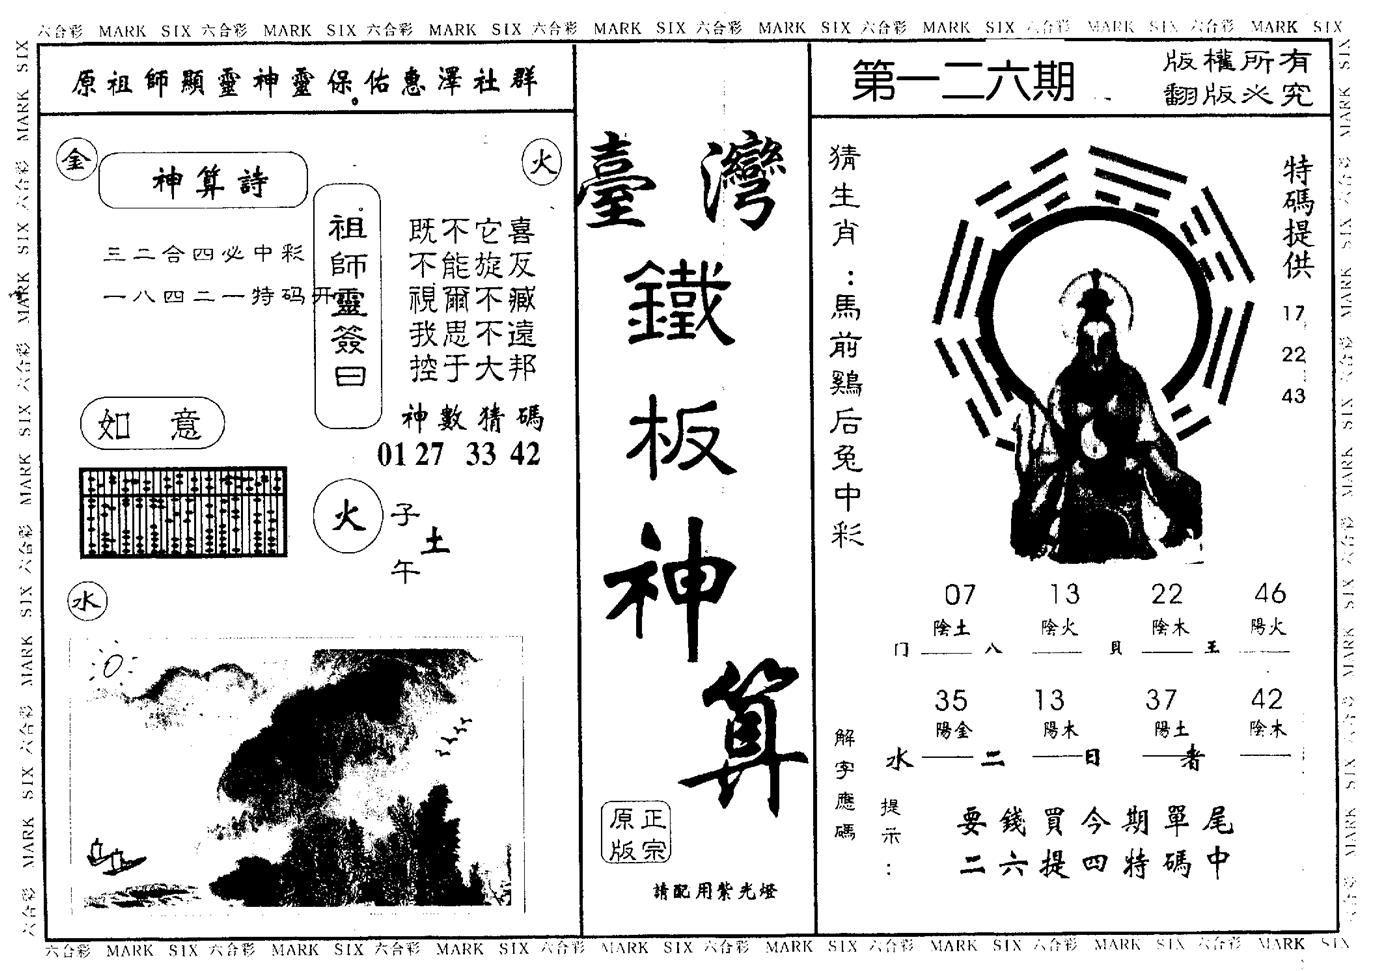 六合彩 MARK SIX 六合彩 MARK SIX 六合彩 MARK SIX 六合彩 MARK SIX 六合彩 MARK SIX 六合彩 MARK SIX 六合彩 MARK SIX 六合彩 MARK SIX
原祖師顯靈神靈保佑惠澤社群
金
神算詩
火
三二合四必中彩
一八四二一特码开
祖師靈簽曰
既不它喜
不能旋反
視爾不臧
我思不遠
控于大邦
神數猜碼
01 27 33 42
如意
火
子
土
午
水
臺灣
鐵
板
神
算
原正
版宗
請配用紫光燈
第一二六期
版權所有
翻版必究
猜生肖：馬前鷄后兔中彩
特碼提供
17
22
43
07 13 22 46
陰土 陰火 陰木 陽火
门 八 貝 王
35 13 37 42
陽金 陽木 陽土 陰木
水 二 日 者
解字應碼
提示：
要錢買今期單尾
二六提四特碼中
六合彩 MARK SIX 六合彩 MARK SIX 六合彩 MARK SIX 六合彩 MARK SIX 六合彩 MARK SIX 六合彩 MARK SIX 六合彩 MARK SIX 六合彩 MARK SIX